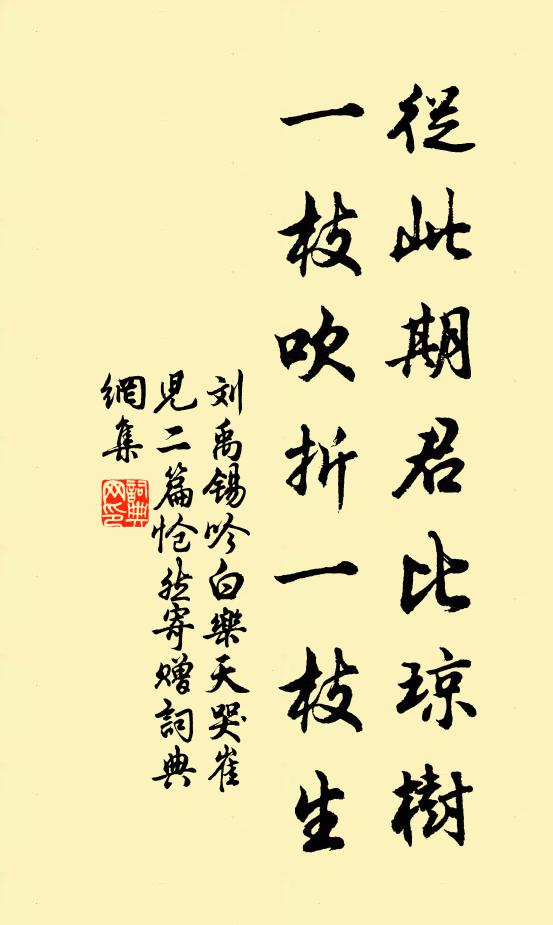 從此期君比琼樹
一枝吹折一枝生
刘禹锡吟白樂天哭崔
児二篇怆然寄赠詞典
網集
詞典
网印